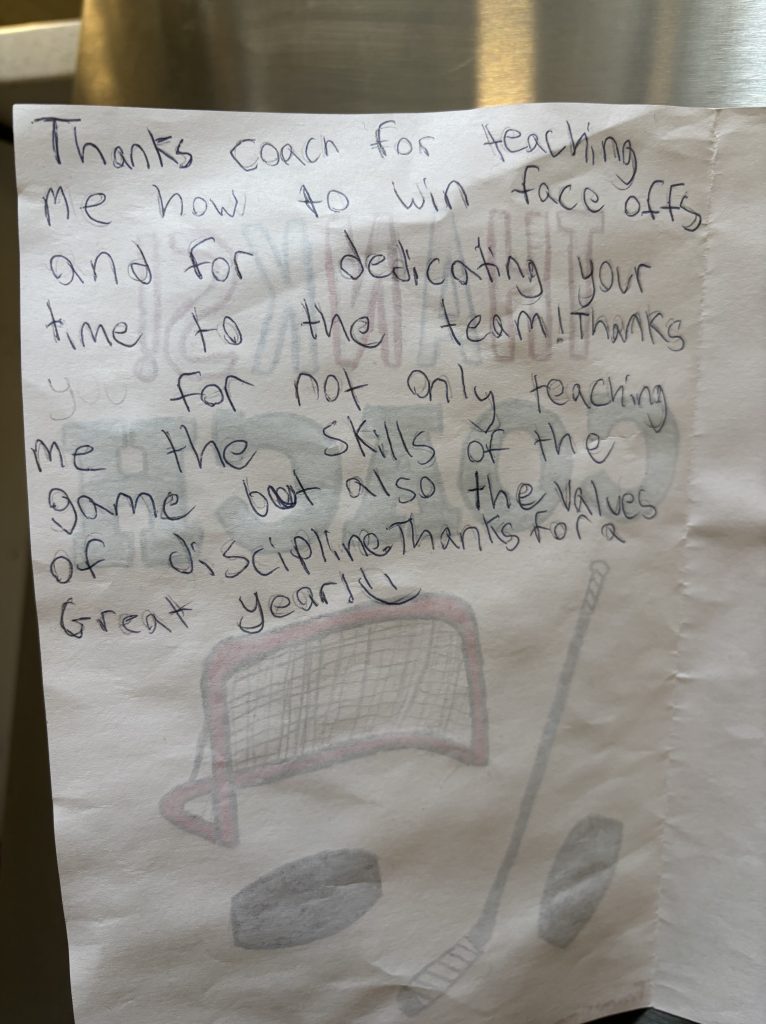 Thanks coach for teaching
me how to win face offs
and for dedicating your
time to the team! Thanks
you for not only teaching
me the skills of the
game but also the values
of discipline. Thanks for a
Great year!! :)
THANKS!
COACH